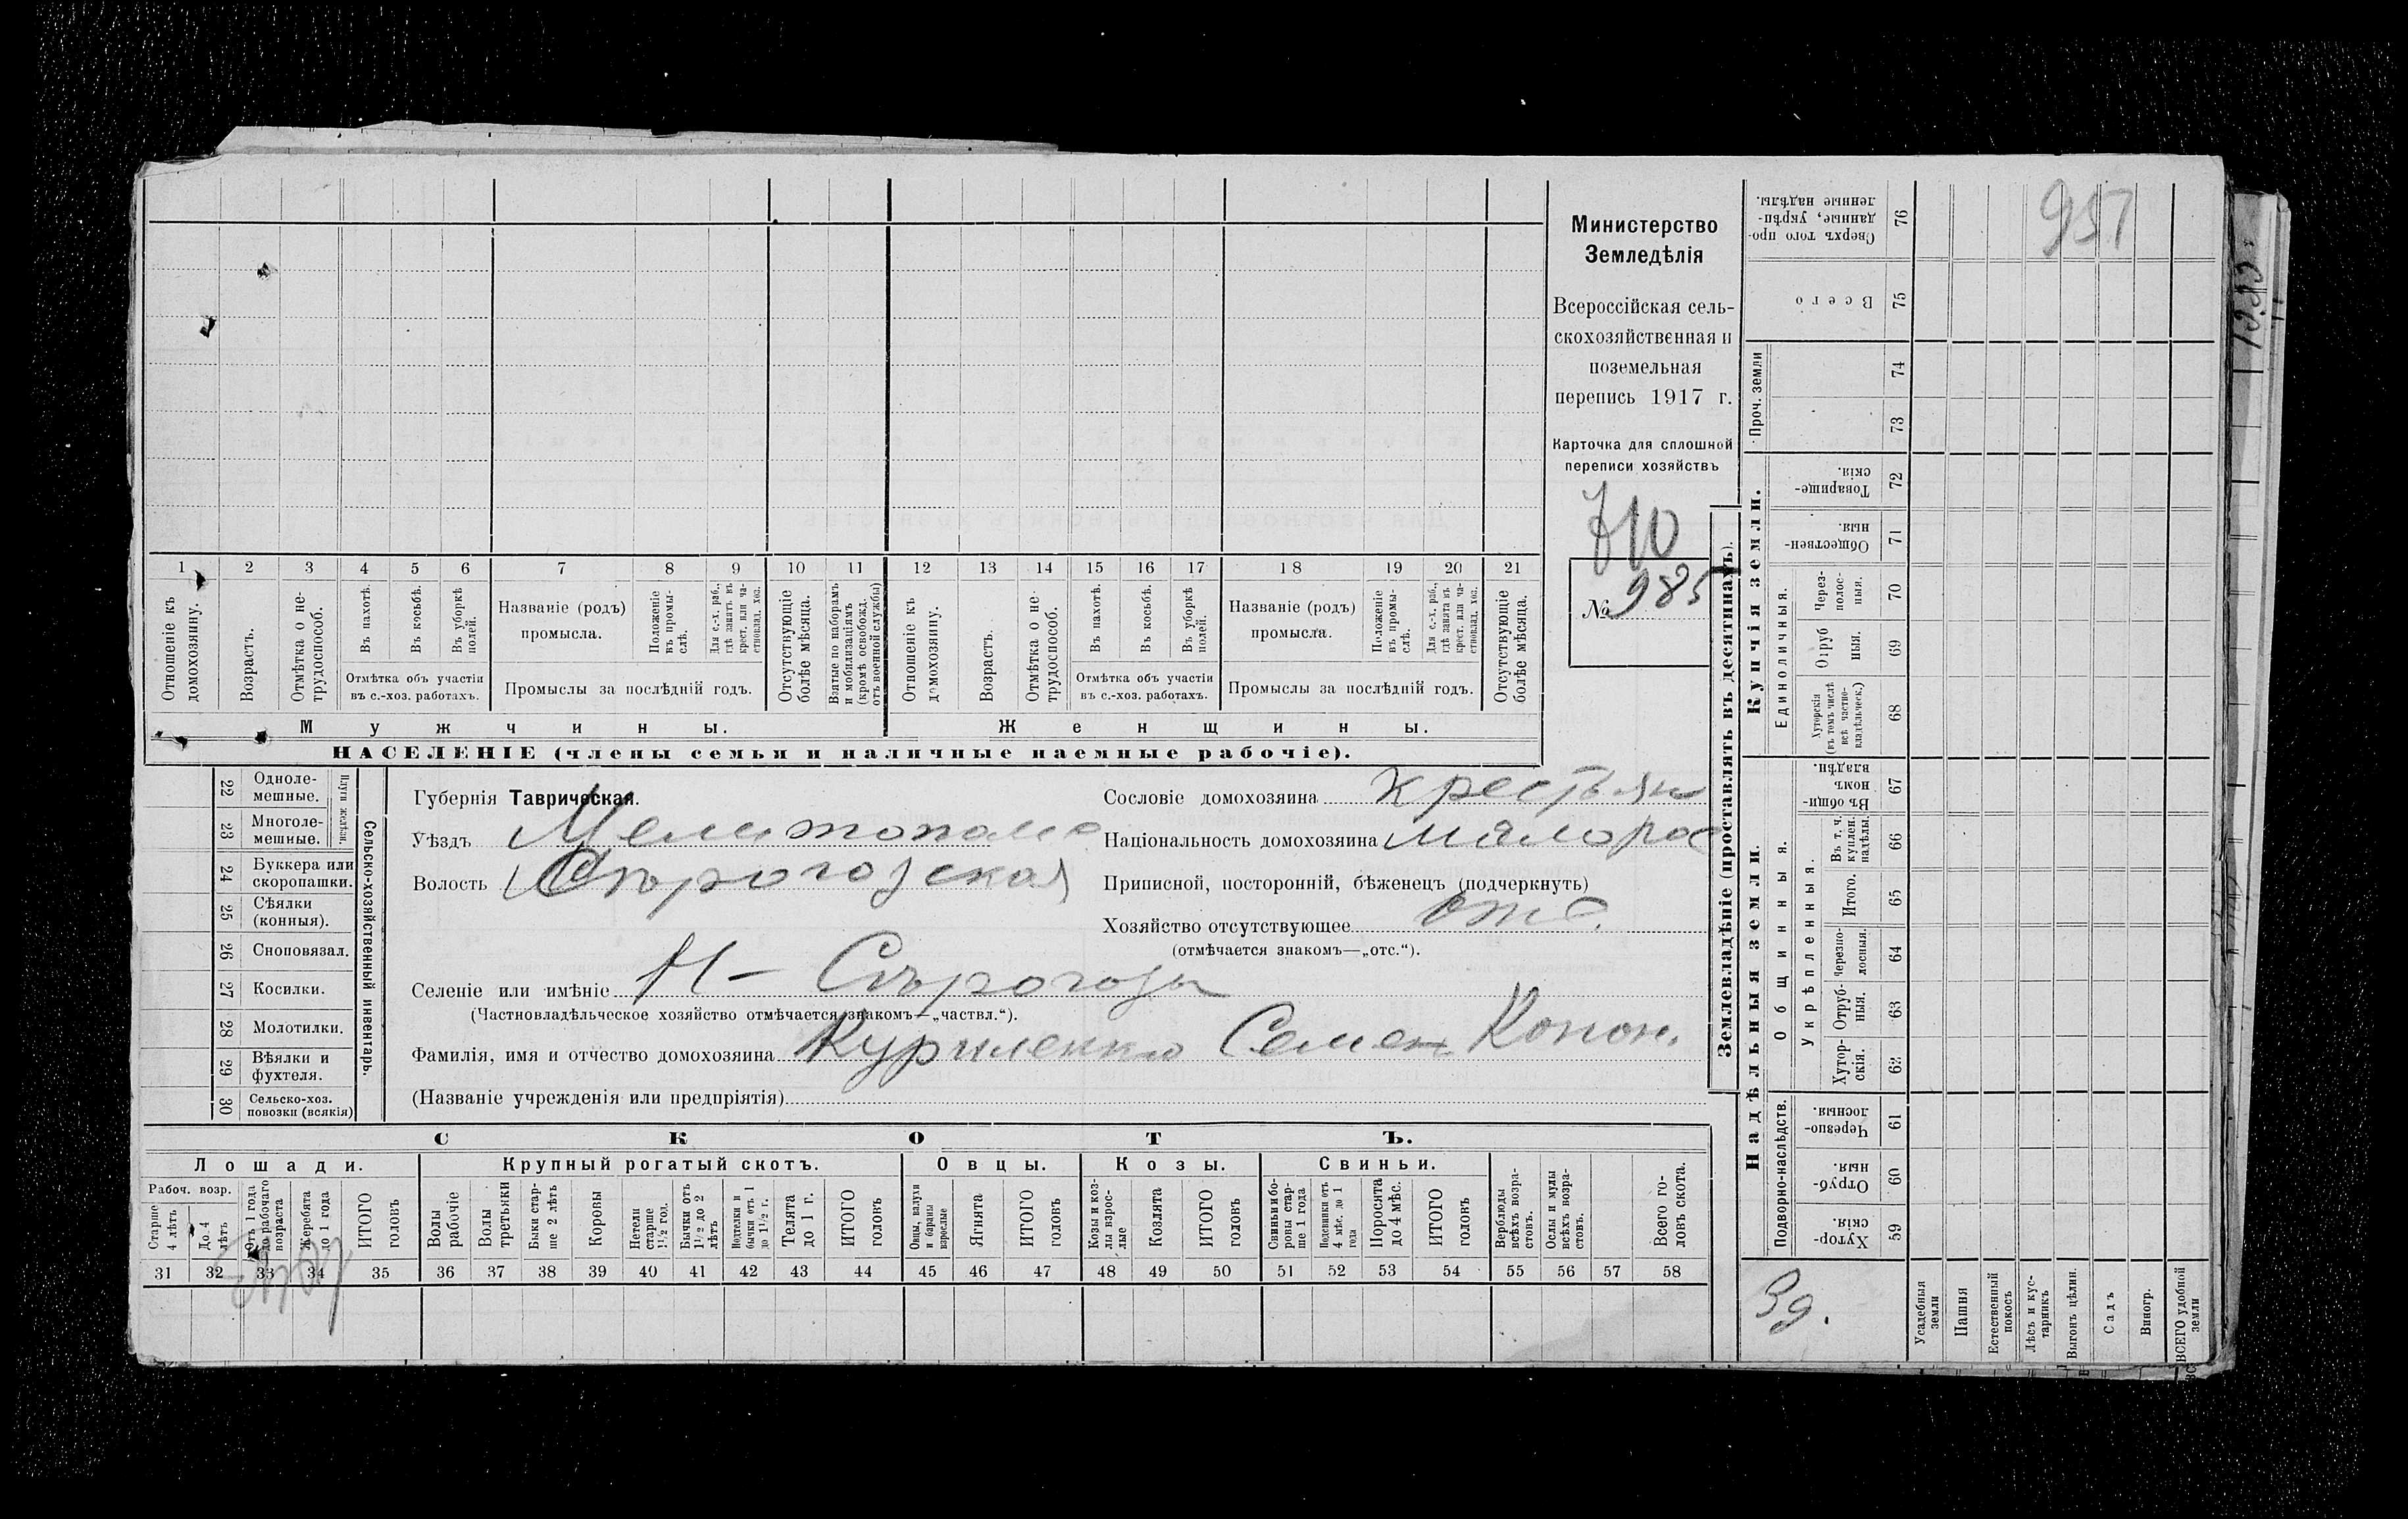 Министерство
Земледѣлія
Всероссійская сель-
скохозяйственная и
поземельная
перепись 1917 г.
Карточка для сплошной
переписи хозяйствъ
710
№ 985
1 2 3 4 5 6 7 8 9 10 11 12 13 14 15 16 17 18 19 20 21
Отношеніе къ домохозяину.
Возрастъ.
Отмѣтка о не-трудоспособ.
Въ пахотѣ.
Въ косьбѣ.
Въ уборкѣ полей.
Отмѣтка объ участіи въ с.-хоз. работахъ.
Названіе (родъ) промысла.
Положеніе въ промы-слѣ.
Для с.-х. раб., гдѣ занятъ въ крест. или ча-стновлад. хоз.
Промыслы за послѣдній годъ.
Отсутствующіе болѣе мѣсяца.
Взятые по наборамъ и мобилизаціямъ (кромѣ освобожд. отъ военной службы)
Отношеніе къ домохозяину.
Возрастъ.
Отмѣтка о не-трудоспособ.
Въ пахотѣ.
Въ косьбѣ.
Въ уборкѣ полей.
Отмѣтка объ участіи въ с.-хоз. работахъ.
Названіе (родъ) промысла.
Положеніе въ промы-слѣ.
Для с.-х. раб., гдѣ занята въ крест. или ча-стновлад. хоз.
Промыслы за послѣдній годъ.
Отсутствующіе болѣе мѣсяца.
Мужчины. Женщины.
НАСЕЛЕНІЕ (члены семьи и наличные наемные рабочіе).
Сельско-хозяйственный инвентарь.
Плуги желѣзн.
22 Одноле-мешные.
23 Многоле-мешные.
24 Буккера или скоропашки.
25 Сѣялки (конныя).
26 Сноповязал.
27 Косилки.
28 Молотилки.
29 Вѣялки и фухтеля.
30 Сельско-хоз. повозки (всякія)
Губернія Таврическая.
Уѣздъ Мелитополь
Волость Сѣрогозская
Сословіе домохозяина крестьян
Національность домохозяина малорос
Приписной, посторонній, бѣженецъ (подчеркнуть)
Хозяйство отсутствующее отс.
(отмѣчается знакомъ—„отс.“).
Селеніе или имѣніе Н- Сѣрогозы
(Частновладѣльческое хозяйство отмѣчается знакомъ—„частвл.“).
Фамилія, имя и отчество домохозяина Куриленко Семен Конон.
(Названіе учрежденія или предпріятія)
СКОТЪ.
Лошади. Крупный рогатый скотъ. Овцы. Козы. Свиньи.
Рабоч. возр.
Старше 4 лѣтъ
До 4 лѣтъ
Отъ 1 года до рабочаго возраста
Жеребята до 1 года
ИТОГО головъ
Волы рабочіе
Волы третьяки
Быки стар-ше 2 лѣтъ
Коровы
Нетели старше 1½ год.
Бычки отъ 1½ до 2 лѣтъ
Подтелки и бычки отъ 1 до 1½ г.
Телята до 1 г.
ИТОГО головъ
Овцы, валухи и бараны взрослые
Ягнята
ИТОГО головъ
Козы и коз-лы взрос-лые
Козлята
ИТОГО головъ
Свиньи и бо-ровы стар-ше 1 года
Подсвинки отъ 4 мѣс. до 1 года
Поросята до 4 мѣс.
ИТОГО головъ
Верблюды всѣхъ возра-стовъ.
Ослы и мулы всѣхъ возра-стовъ.
Всего го-ловъ скота.
31 32 33 34 35 36 37 38 39 40 41 42 43 44 45 46 47 48 49 50 51 52 53 54 55 56 57 58
Землевладѣніе (проставлять въ десятинахъ).
Купчія земли.
Надѣльныя земли.
Сверхъ того про-данные, укрѣп-ленные надѣлы. 76
Всего 75
Проч. земли 74 73
Товарище-скія. 72
Обществен-ныя. 71
Единоличныя.
Через-полос-ныя. 70
Отруб ныя. 69
Хуторскія (въ томъ числѣ всѣ частно-владѣльческ.) 68
Общинныя.
Въ общин-номъ владѣн. 67
Укрѣпленныя.
Въ т. ч. куплен. надѣлы. 66
Итого. 65
Черезпо-лосныя. 64
Отруб-ныя. 63
Хутор-скія. 62
Подворно-наслѣдств.
Черезпо-лосныя. 61
Отруб-ныя. 60
Хутор-скія. 59
Усадебныя земли
Пашня
Естественный покосъ
Лѣсъ и кус-тарникъ
Выгонъ цѣлин.
Садъ
Виногр.
ВСЕГО удобной земли
951